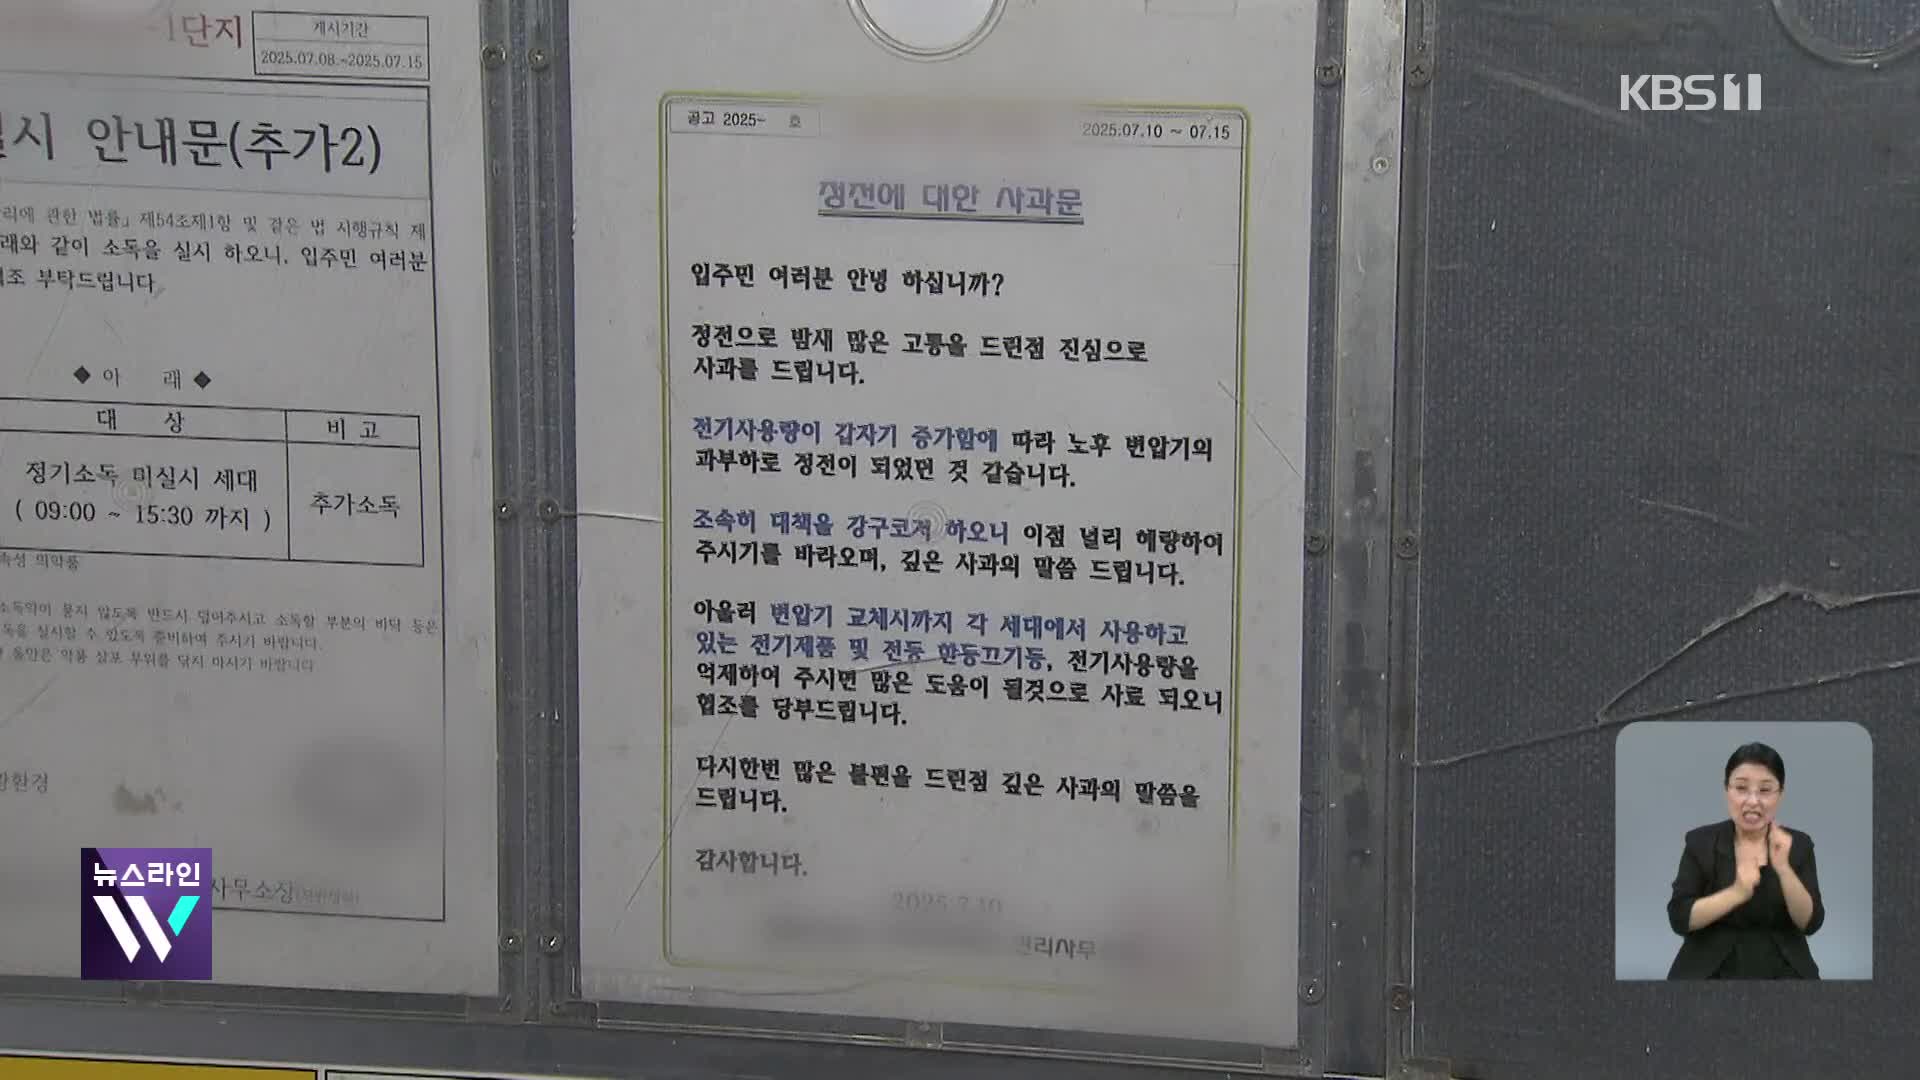 -1단지
게시기간
2025.07.08.~2025.07.15
시 안내문(추가2)
리에 관한 법률」 제54조제1항 및 같은 법 시행규칙 제
래와 같이 소독을 실시 하오니, 입주민 여러분
조 부탁드립니다.
◆ 아 래 ◆
대 상
비 고
정기소독 미실시 세대
( 09:00 ~ 15:30 까지 )
추가소독
속성 의약품
소독약이 묻지 않도록 반드시 덮어주시고 소독할 부분의 바닥 등은
독을 실시할 수 있도록 준비하여 주시기 바랍니다.
동안은 약품 살포 부위를 닦지 마시기 바랍니다
환경
사무소장
공고 2025- 호
2025.07.10 ~ 07.15
정전에 대한 사과문
입주민 여러분 안녕 하십니까?
정전으로 밤새 많은 고통을 드린점 진심으로
사과를 드립니다.
전기사용량이 갑자기 증가함에 따라 노후 변압기의
과부하로 정전이 되었던 것 같습니다.
조속히 대책을 강구코저 하오니 이점 널리 헤량하여
주시기를 바라오며, 깊은 사과의 말씀 드립니다.
아울러 변압기 교체시까지 각 세대에서 사용하고
있는 전기제품 및 전등 한등끄기등, 전기사용량을
억제하여 주시면 많은 도움이 될것으로 사료 되오니
협조를 당부드립니다.
다시한번 많은 불편을 드린점 깊은 사과의 말씀을
드립니다.
감사합니다.
2025.7.10
관리사무
KBS 1
뉴스라인
W